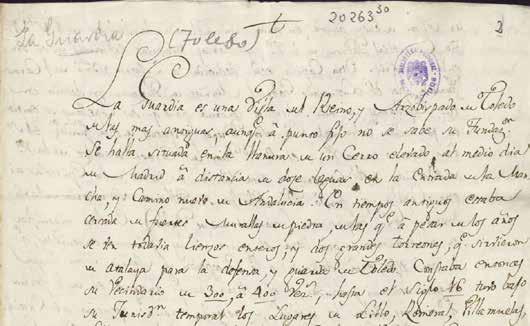 20263 30
La Guardia (Toledo) t 2
La Guardia es una Villa del Reino, y Arzobispado de Toledo
de las mas antiguas, aunq.e à punto fijo no se sabe su Fundac.n
Se halla situada en la llanura de un Cerro elevado, al medio dia
de Madrid à distancia de doze leguas en la Entrada de la Man-
cha, y Camino nuevo de Andalucia. En tiempos antiguos estaba
cercada de fuertes Murallas de piedra, de las q.e à pesar de los años
se ven todavia lienzos enteros, y dos grandes torreones, q.e sirvieron
de atalaya para la defensa, y guarda de Toledo. Constaba entonces
su Vecindario de 300, à 400 Vez.s, hasta el siglo 16 tuvo bajo
su Jurisd.n temporal los Lugares de Lillo, Romeral, Villamuelas,